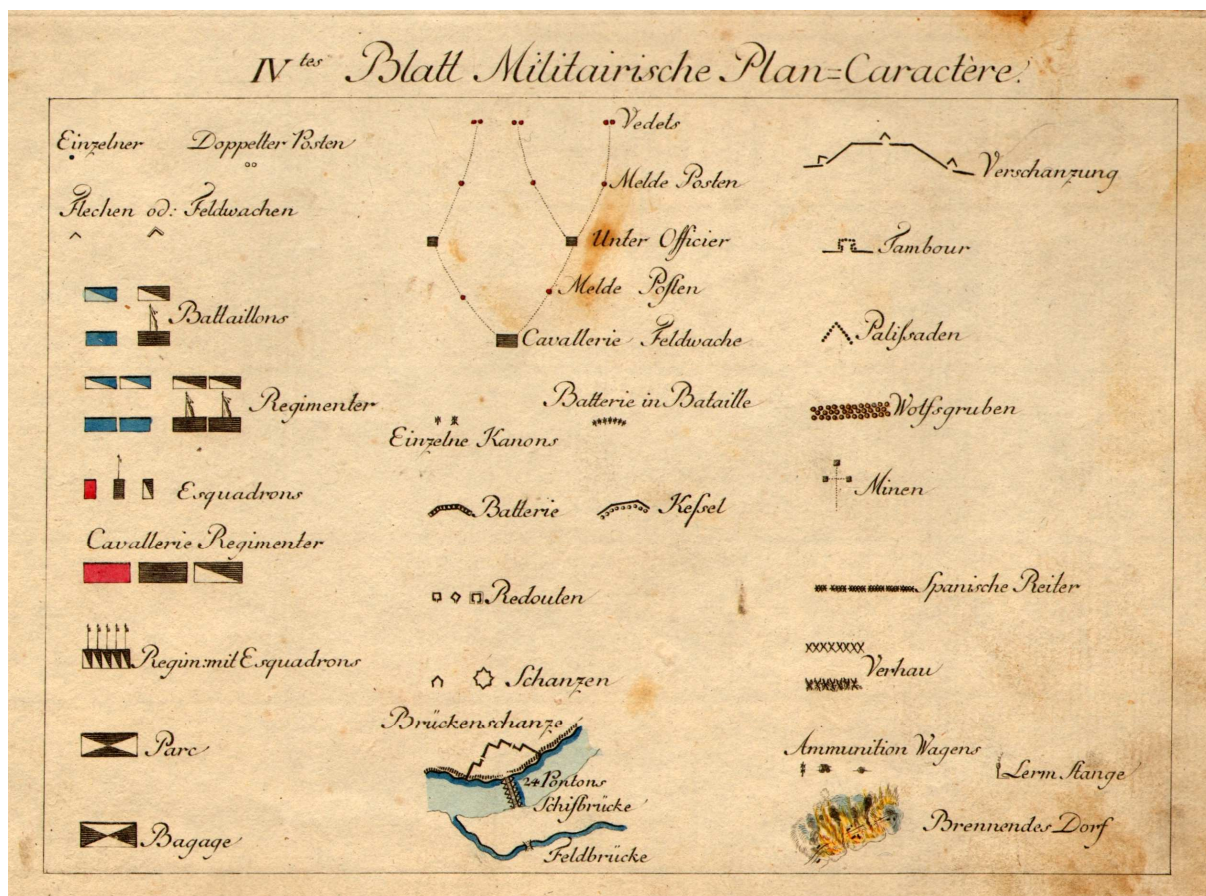 IV tes Blatt Militairische Plan=Caractère.
Einzelner Doppelter Posten
Flechen od: Feldwachen
Battaillons
Regimenter
Esquadrons
Cavallerie Regimenter
Regim: mit Esquadrons
Parc
Bagage
Vedets
Melde Posten
Unter Officier
Melde Poſten
Cavallerie Feldwache
Batterie in Bataille
Einzelne Kanons
Batterie Keſsel
Redouten
Schanzen
Brückenschanze
24 Pontons
Schifbrücke
Feldbrücke
Verschanzung
Tambour
Paliſsaden
Wolfsgruben
Minen
Spanische Reiter
Verhau
Ammunition Wagens
Lerm Stange
Brennendes Dorf